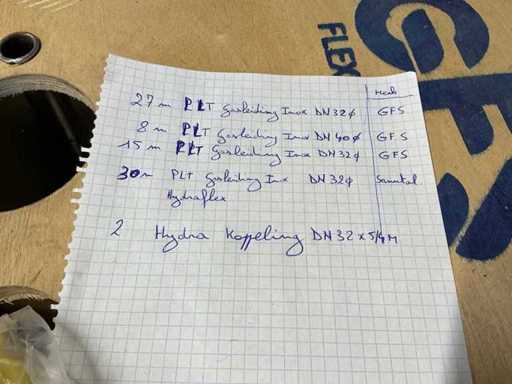 Merk
27 m PLT Gasleiding Inox DN32∅ GFS
8 m PLT Gasleiding Inox DN40∅ GFS
15 m PLT Gasleiding Inox DN32∅ GFS
30 m PLT Gasleiding Inox DN32∅
Hydraflex
2 Hydra Koppeling DN32 x 5/4 M
FLEX
GFS